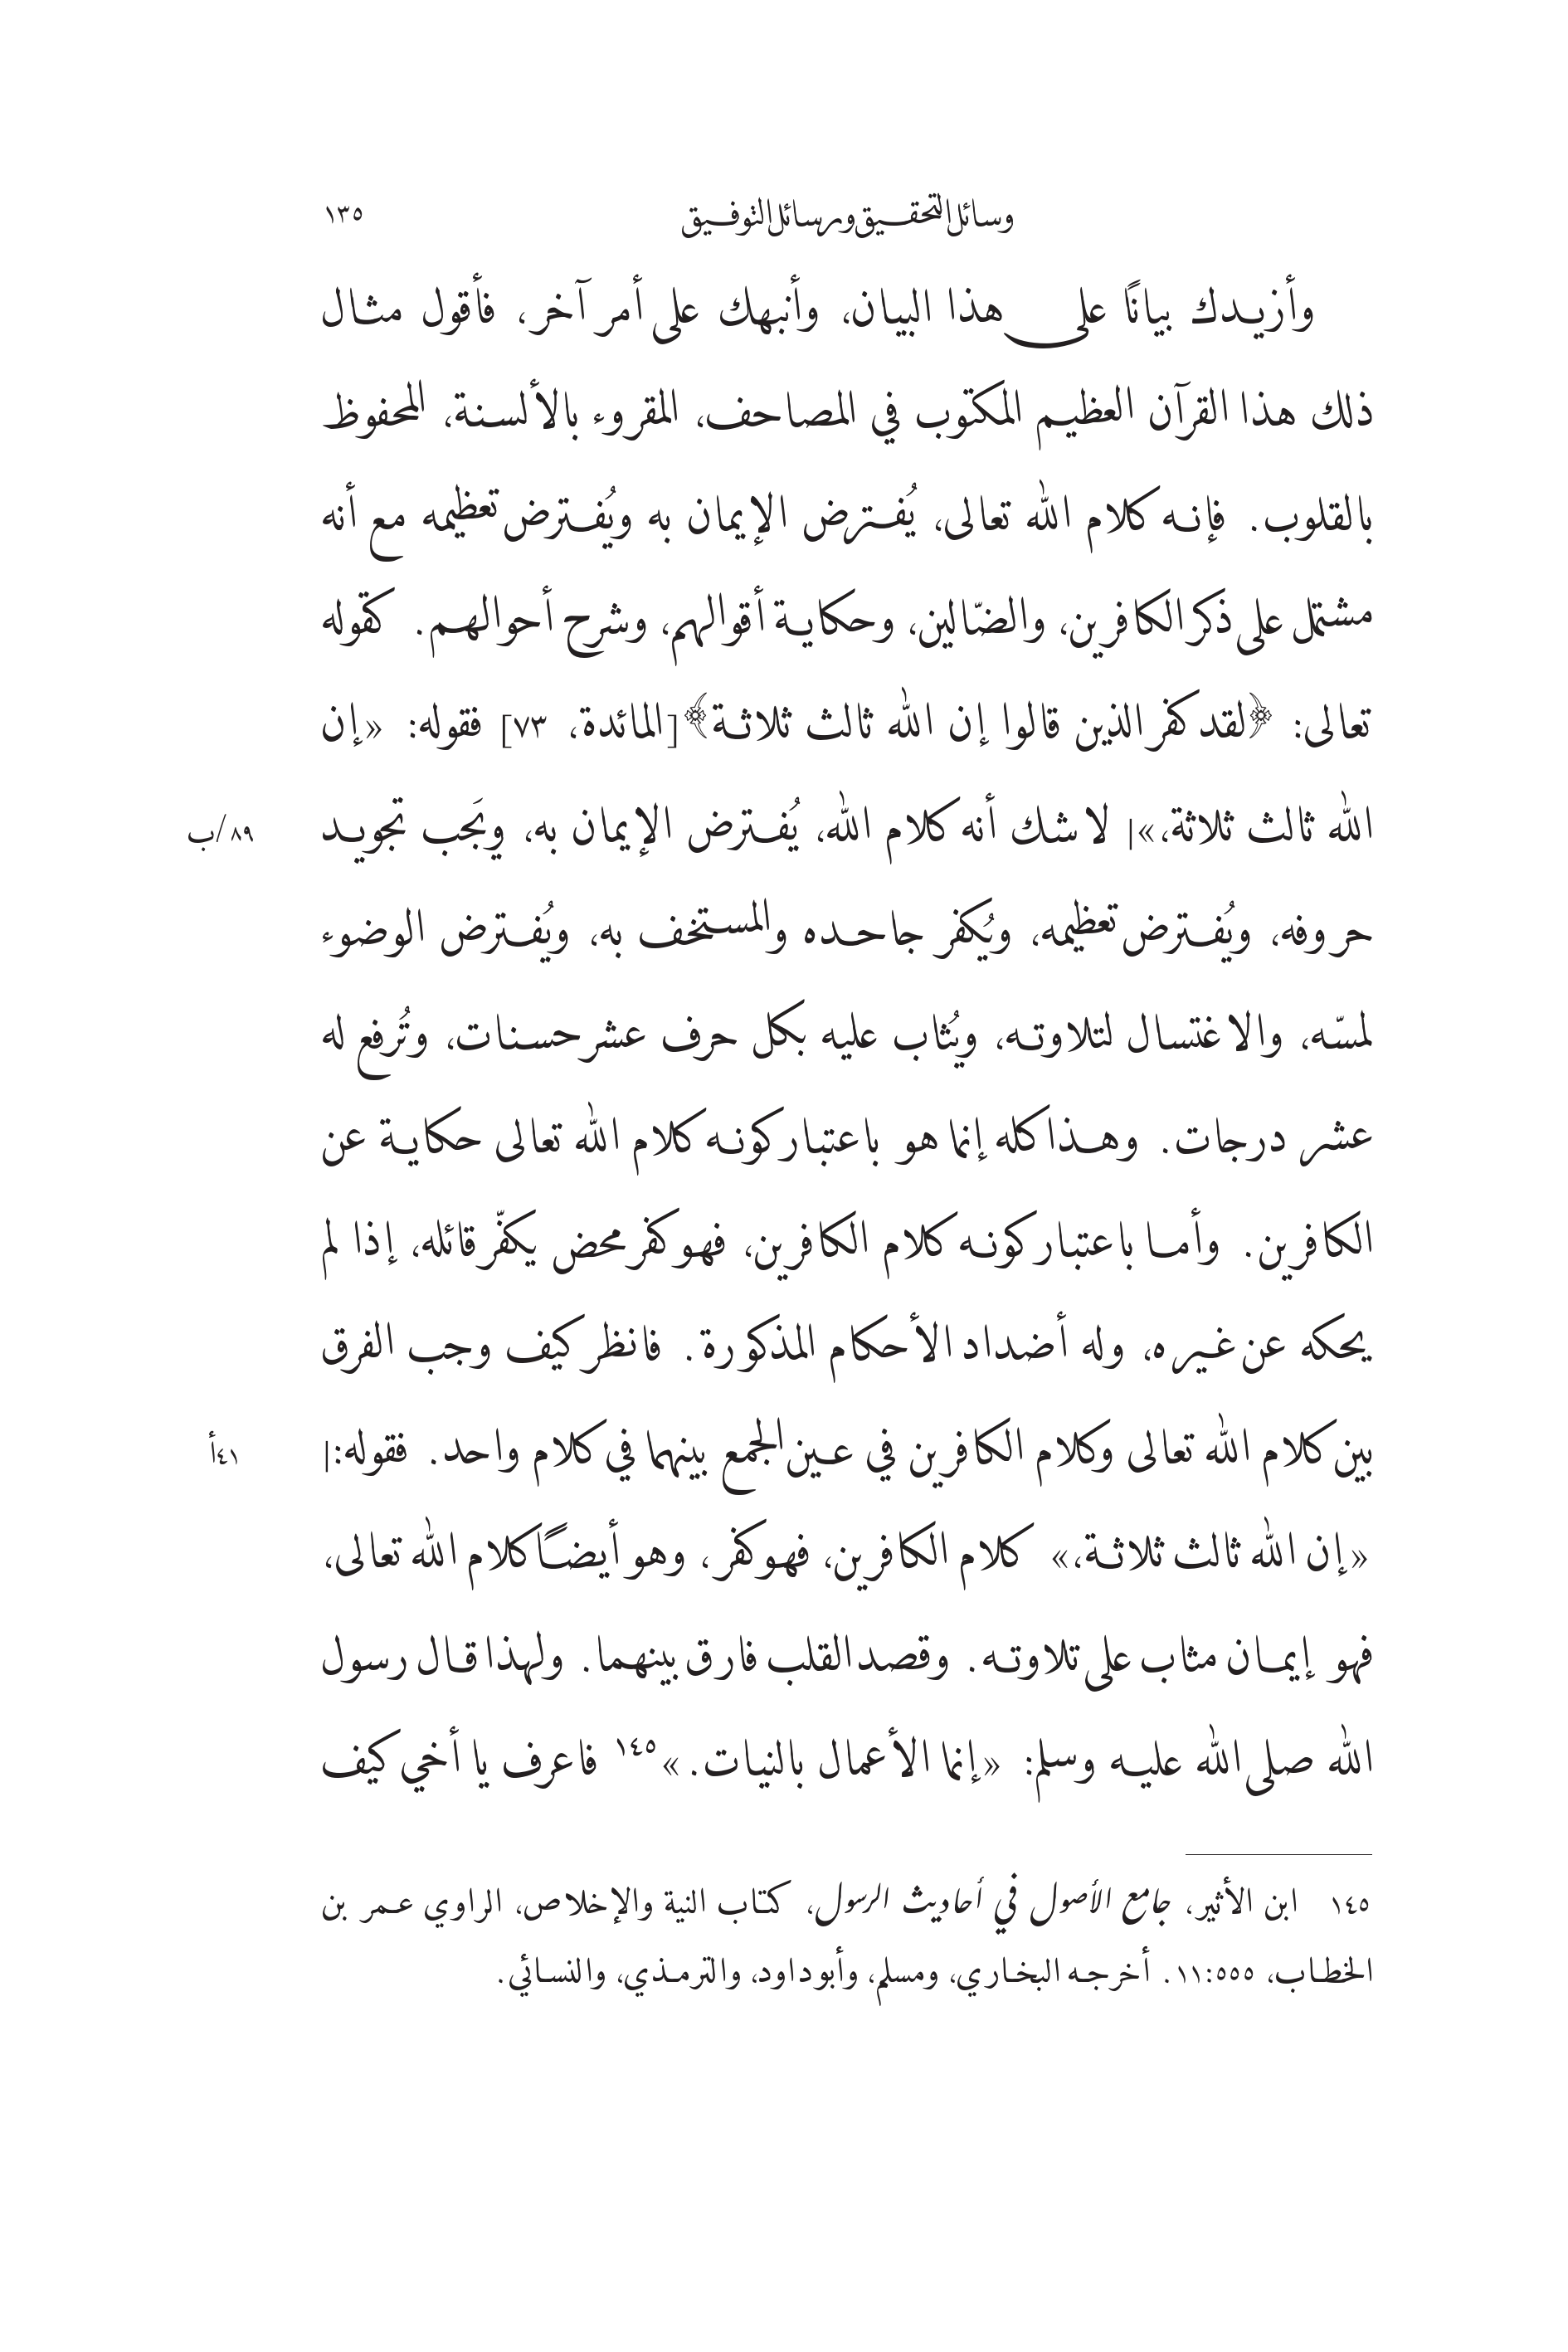 وسائل التحقيق ورسائل التوفيق ١٣٥
وأزيدك بيانًا على هذا البيان، وأنبهك على أمر آخر، فأقول مثال
ذلك هذا القرآن العظيم المكتوب في المصاحف، المقروء بالألسنة، المحفوظ
بالقلوب. فإنه كلام الله تعالى، يُفترض الإيمان به ويُفترض تعظيمه مع أنه
مشتمل على ذكر الكافرين، والضّالين، وحكاية أقوالهم، وشرح أحوالهم. كقوله
تعالى: ﴿لقد كفر الذين قالوا إن الله ثالث ثلاثة﴾[المائدة، ٧٣] فقوله: «إن
الله ثالث ثلاثة،»| لا شك أنه كلام الله، يُفترض الإيمان به، ويَجب تجويد ٨٩/ب
حروفه، ويُفترض تعظيمه، ويُكفر جاحده والمستخف به، ويُفترض الوضوء
لمسّه، والاغتسال لتلاوته، ويُثاب عليه بكل حرف عشر حسنات، وتُرفع له
عشر درجات. وهذا كله إنما هو باعتبار كونه كلام الله تعالى حكاية عن
الكافرين. وأما باعتبار كونه كلام الكافرين، فهو كفر محض يكفّر قائله، إذا لم
يحكه عن غيره، وله أضداد الأحكام المذكورة. فانظر كيف وجب الفرق
بين كلام الله تعالى وكلام الكافرين في عين الجمع بينهما في كلام واحد. فقوله:| ٤١أ
«إن الله ثالث ثلاثة،» كلام الكافرين، فهو كفر، وهو أيضًا كلام الله تعالى،
فهو إيمان مثاب على تلاوته. وقصد القلب فارق بينهما. ولهذا قال رسول
الله صلى الله عليه وسلم: «إنما الأعمال بالنيات.»١٤٥ فاعرف يا أخي كيف
١٤٥ ابن الأثير، جامع الأصول في أحاديث الرسول، كتاب النية والإخلاص، الراوي عمر بن
الخطاب، ١١:٥٥٥. أخرجه البخاري، ومسلم، وأبو داود، والترمذي، والنسائي.